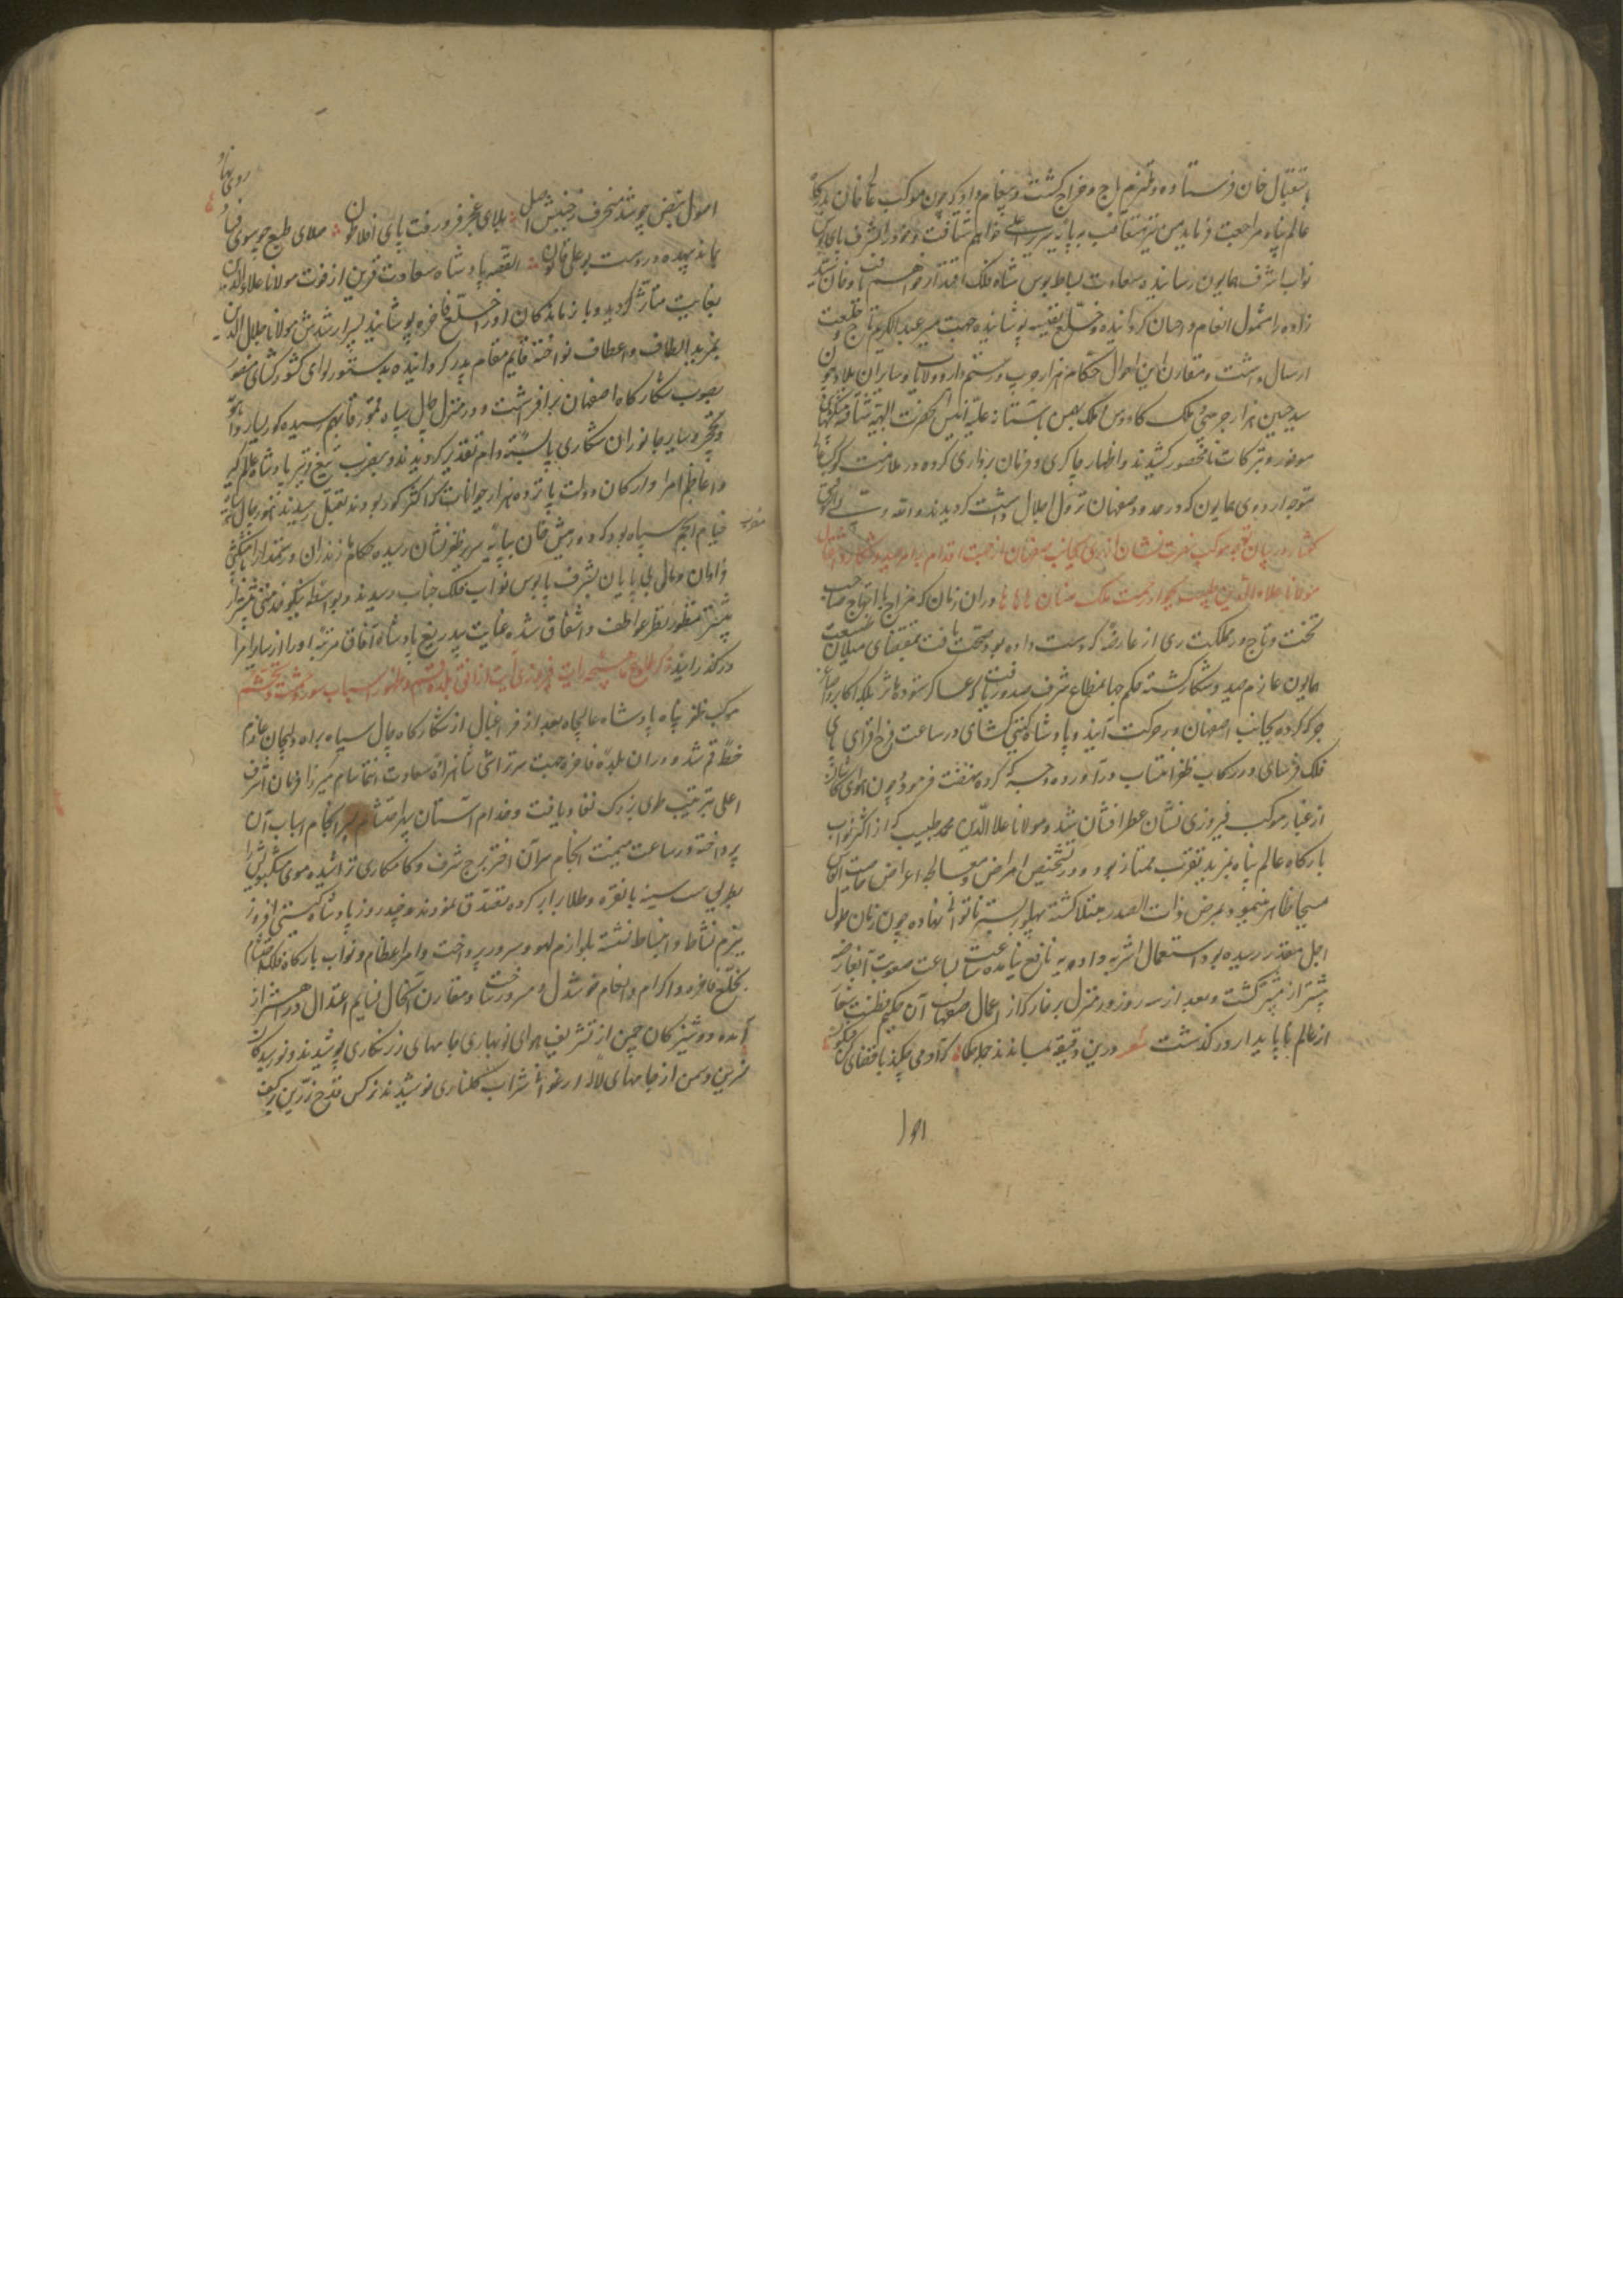 باستقبال خان فرستاده و ملتزم باج و خراج گشت و پیغام داد که چون موکب خاقان
عالم پناه مراجعت فرماید من نیز متعاقب بپایه سریر اعلی خواهم شتافت و خود را بشرف پای بوس
نواب اشرف همایون رسانیده سعادت بساط بوس شاه فلک اقتدار خواهم یافت و خان
زاده را مشمول انعام و احسان گردانیده و خلع نفیسه پوشانیده جهت میر عبد الکریم تاج و خلعت
ارسال داشت و مقارن این احوال حکام هزار جریب و رستمدار و ولات و سایر آن بلاد چون
سید حسین هزار جریبی و ملک کاوس و ملک بهمن باستان علیه شتافته پیشکشهای
موفور و تبرکات نامحصور کشیدند و اظهار چاکری و فرمان برداری کرده در ملازمت
متوجه اردوی همایون که در حدود صفهان نزول اجلال داشت گردیدند
گفتار در بیان توجه موکب نصرت نشان از ری بجانب صفاهان از جهت اقدام بامر صید و شکار و انتقال
مولانا علاء الدین طبیب بجوار رحمت ملک منان در آن زمان که مزاج با ابتهاج صاحب
تخت و تاج در مملکت ری از عارضه که دست داده بود صحت یافت بمقتضای میلان طبیعت
همایون عازم صید و شکار گشته حکم جهانمطاع شرف صدور یافت که عساکر ستوده مآثر بلکه اکابر و اصاغر
جرگه کرده بجانب اصفهان در حرکت آیند و پادشاه گیتی گشای در ساعت فرح افزای پای
فلک فرسای در رکاب ظفر انتساب درآورده و جرگه کرده نهضت فرمود و چون هوای کاشان
از غبار موکب فیروزی نشان عطر افشان شد و مولانا علا الدین محمد طبیب که از اکثر نواب
بارگاه عالم پناه بمزید تقرب ممتاز بود و در تشخیص امراض و معالجه اعراض خاصیت انفاس
مسیحا ظاهر مینمود بمرض ذات الصدر مبتلا گشته پهلو بر بستر ناتوانی نهاده چون زمان حلول
اجل مقدر رسیده بود استعمال اشربه و ادویه نافع نیامده ساعت بساعت صعوبت آنعارضه
بیشتر از پیشتر گشت و بعد از سه روز در منزل برخار که از اعمال صفهانست آن حکیم فطنت شعار
از عالم ناپایدار درگذشت شعر درین دقیقه بماندند جمله حکما که آدمی چکند با قضای کن فیکون
اصول نبض چو شد منحرف ز جنبش اصل بلای عجز فرو رفت پای افلاطون صلای طبع چو سوی فساد روی نهاد
بماند بیهده در دست بو علی قانون القصه پادشاه سعادت قرین از فوت مولانا علاء الدین
بغایت متأثر گردید و بازماندگان او را خلع فاخره پوشانید پسر ارشدش مولانا جلال الدین
بمزید الطاف و اعطاف نواخته قایم مقام پدر گردانیده بدستور لوای کشور گشای
بصوب شکارگاه اصفهان برافراشت و در منزل چال سیاه قمرغه بهم رسیده گور بسیار و آهو
و نخچیر و سایر جانوران شکاری پای بسته دام تقدیر گردیدند و بضرب تیغ و تیر پادشاه عالم گیر
و اعاظم امرا و ارکان دولت پانزده هزار حیوانات که اکثر گور بودند بقتل رسیدند هنوز چال سیاه
مضرب خیام انجم سپاه بود که دورمیش خان بپایه سریر ظفر نشان رسیده حکام مازندران و رستمدار با پیشکش
فراوان و مال بی پایان بشرف پای بوس نواب فلک جناب رسیدند و بواسطه نیکو خدمتی
بیشتر منظور نظر عواطف و اشفاق شده عنایت بیدریغ پادشاه آفاق مرتبه او را از سایر امرا
درگذرانید ذکر طلوع ماهچه رایت فیروزی آیت از افق بلده قم و ظهور اسباب سور و حشمت و حشم
موکب ظفر پناه پادشاه عالیجاه بعد از فراغبال از شکارگاه چال سیاه براه دلیجان عازم
خطه قم شد و در آن بلده فاخره جهت سرتراشی شاهزاده سعادت انتما سام میرزا فرمان اشرف
اعلی بترتیب طوی بزرگ نفاذ یافت و خدام آستان سپهر احتشام بسرانجام اسباب آن
پرداخته در ساعت میمنت انجام سر آن اختر برج شرف و کامکاری تراشیده موی مشکبویش را
بطریق سنت سنیه با نقره و طلا برابر کرده تصدق نمودند و چند روز پادشاه گیتی افروز
ببزم نشاط و انبساط نشسته بلوازم لهو و سرور پرداخت و امراء عظام و نواب بارگاه فلک احتشام را
بخلع فاخره و اکرام و انعام خوشدل و مسرور ساخت و مقارن آنحال نسایم اعتدال در اهتزاز
آمده دوشیزگان چمن از تشریف هوای نوبهاری جامهای زرنگاری پوشیدند و نورسیدگان
نسرین و سمن از جامهای لاله ارغوانی شراب گلناری نوشیدند نرگس قدح زرین بر کف
اصول